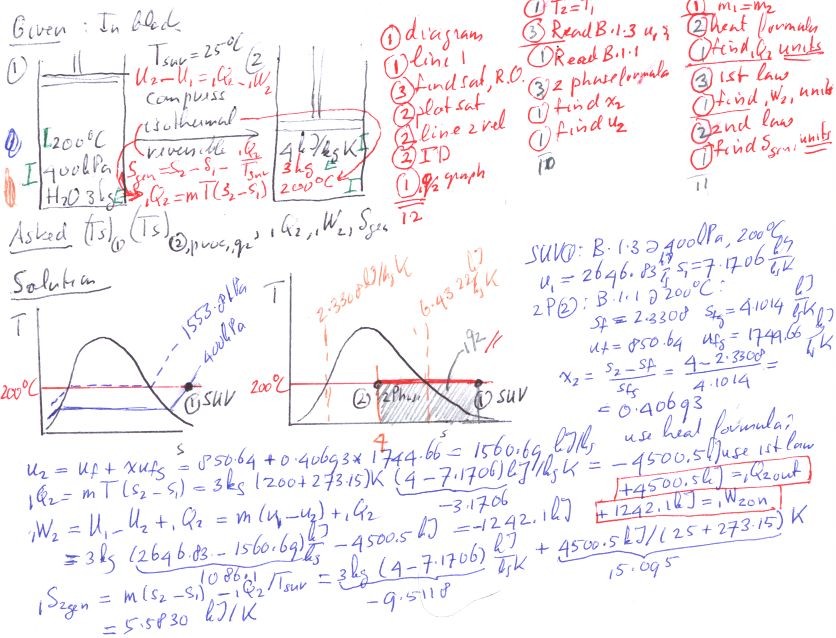 Given : In black
① Tsurr = 25°C (2
U2 - U1 = 1Q2 - 1W2
compress
isothermal
reversible
Sgen = S2 - S1 - 1Q2/Tsurr
1Q2 = mT(S2-S1)
200°C
400kPa
H2O 3kg
4 kJ/kg K
3kg
200°C
① diagram
① line 1
③ find sat, R.O.
② plot sat
② line 2 rel
② ID
① 1q2 graph
12
① T2 = T1
③ Read B.1.3 u, s
① Read B.1.1
③ 2 phase formula
① find x2
① find u2
10
① m1 = m2
② heat formula
① find 1Q2 units
③ 1st law
① find 1W2, units
② 2nd law
① find Sgen, units
11
Asked (Ts)① (Ts)②, proc, q2, 1Q2, 1W2, Sgen
Solution
T
1553.8 kPa
400kPa
200°C
① SUV
s
T
2.3308 kJ/kg K
6.4322 kJ/kg K
1q2
200°C
② 2Phase
① SUV
4
s
SUV①: B.1.3 @ 400kPa, 200°C
u1 = 2646.83 kJ/kg s1 = 7.1706 kJ/kg K
2P②: B.1.1 @ 200°C:
sf = 2.3308 sfg = 4.1014 kJ/kg K
uf = 850.64 ufg = 1744.66 kJ/kg
x2 = (s2 - sf)/sfg = (4 - 2.3308)/4.1014 =
= 0.40693
u2 = uf + x ufg = 850.64 + 0.40693 x 1744.66 = 1560.69 kJ/kg
use heat formula;
1Q2 = mT(s2 - s1) = 3kg (200+273.15)K (4-7.1706) kJ/kg K = -4500.5 kJ use 1st law
-3.1706
+4500.5 kJ = 1Q2out
1W2 = U1 - U2 + 1Q2 = m(u1 - u2) + 1Q2
+1242.1 kJ = 1W2on
= 3kg (2646.83 - 1560.69) kJ/kg - 4500.5 kJ = -1242.1 kJ
1086.1
1S2gen = m(s2 - s1) - 1Q2/Tsurr = 3kg (4-7.1706) kJ/kg K + 4500.5 kJ/(25+273.15) K
-9.5118 15.095
= 5.5830 kJ/K